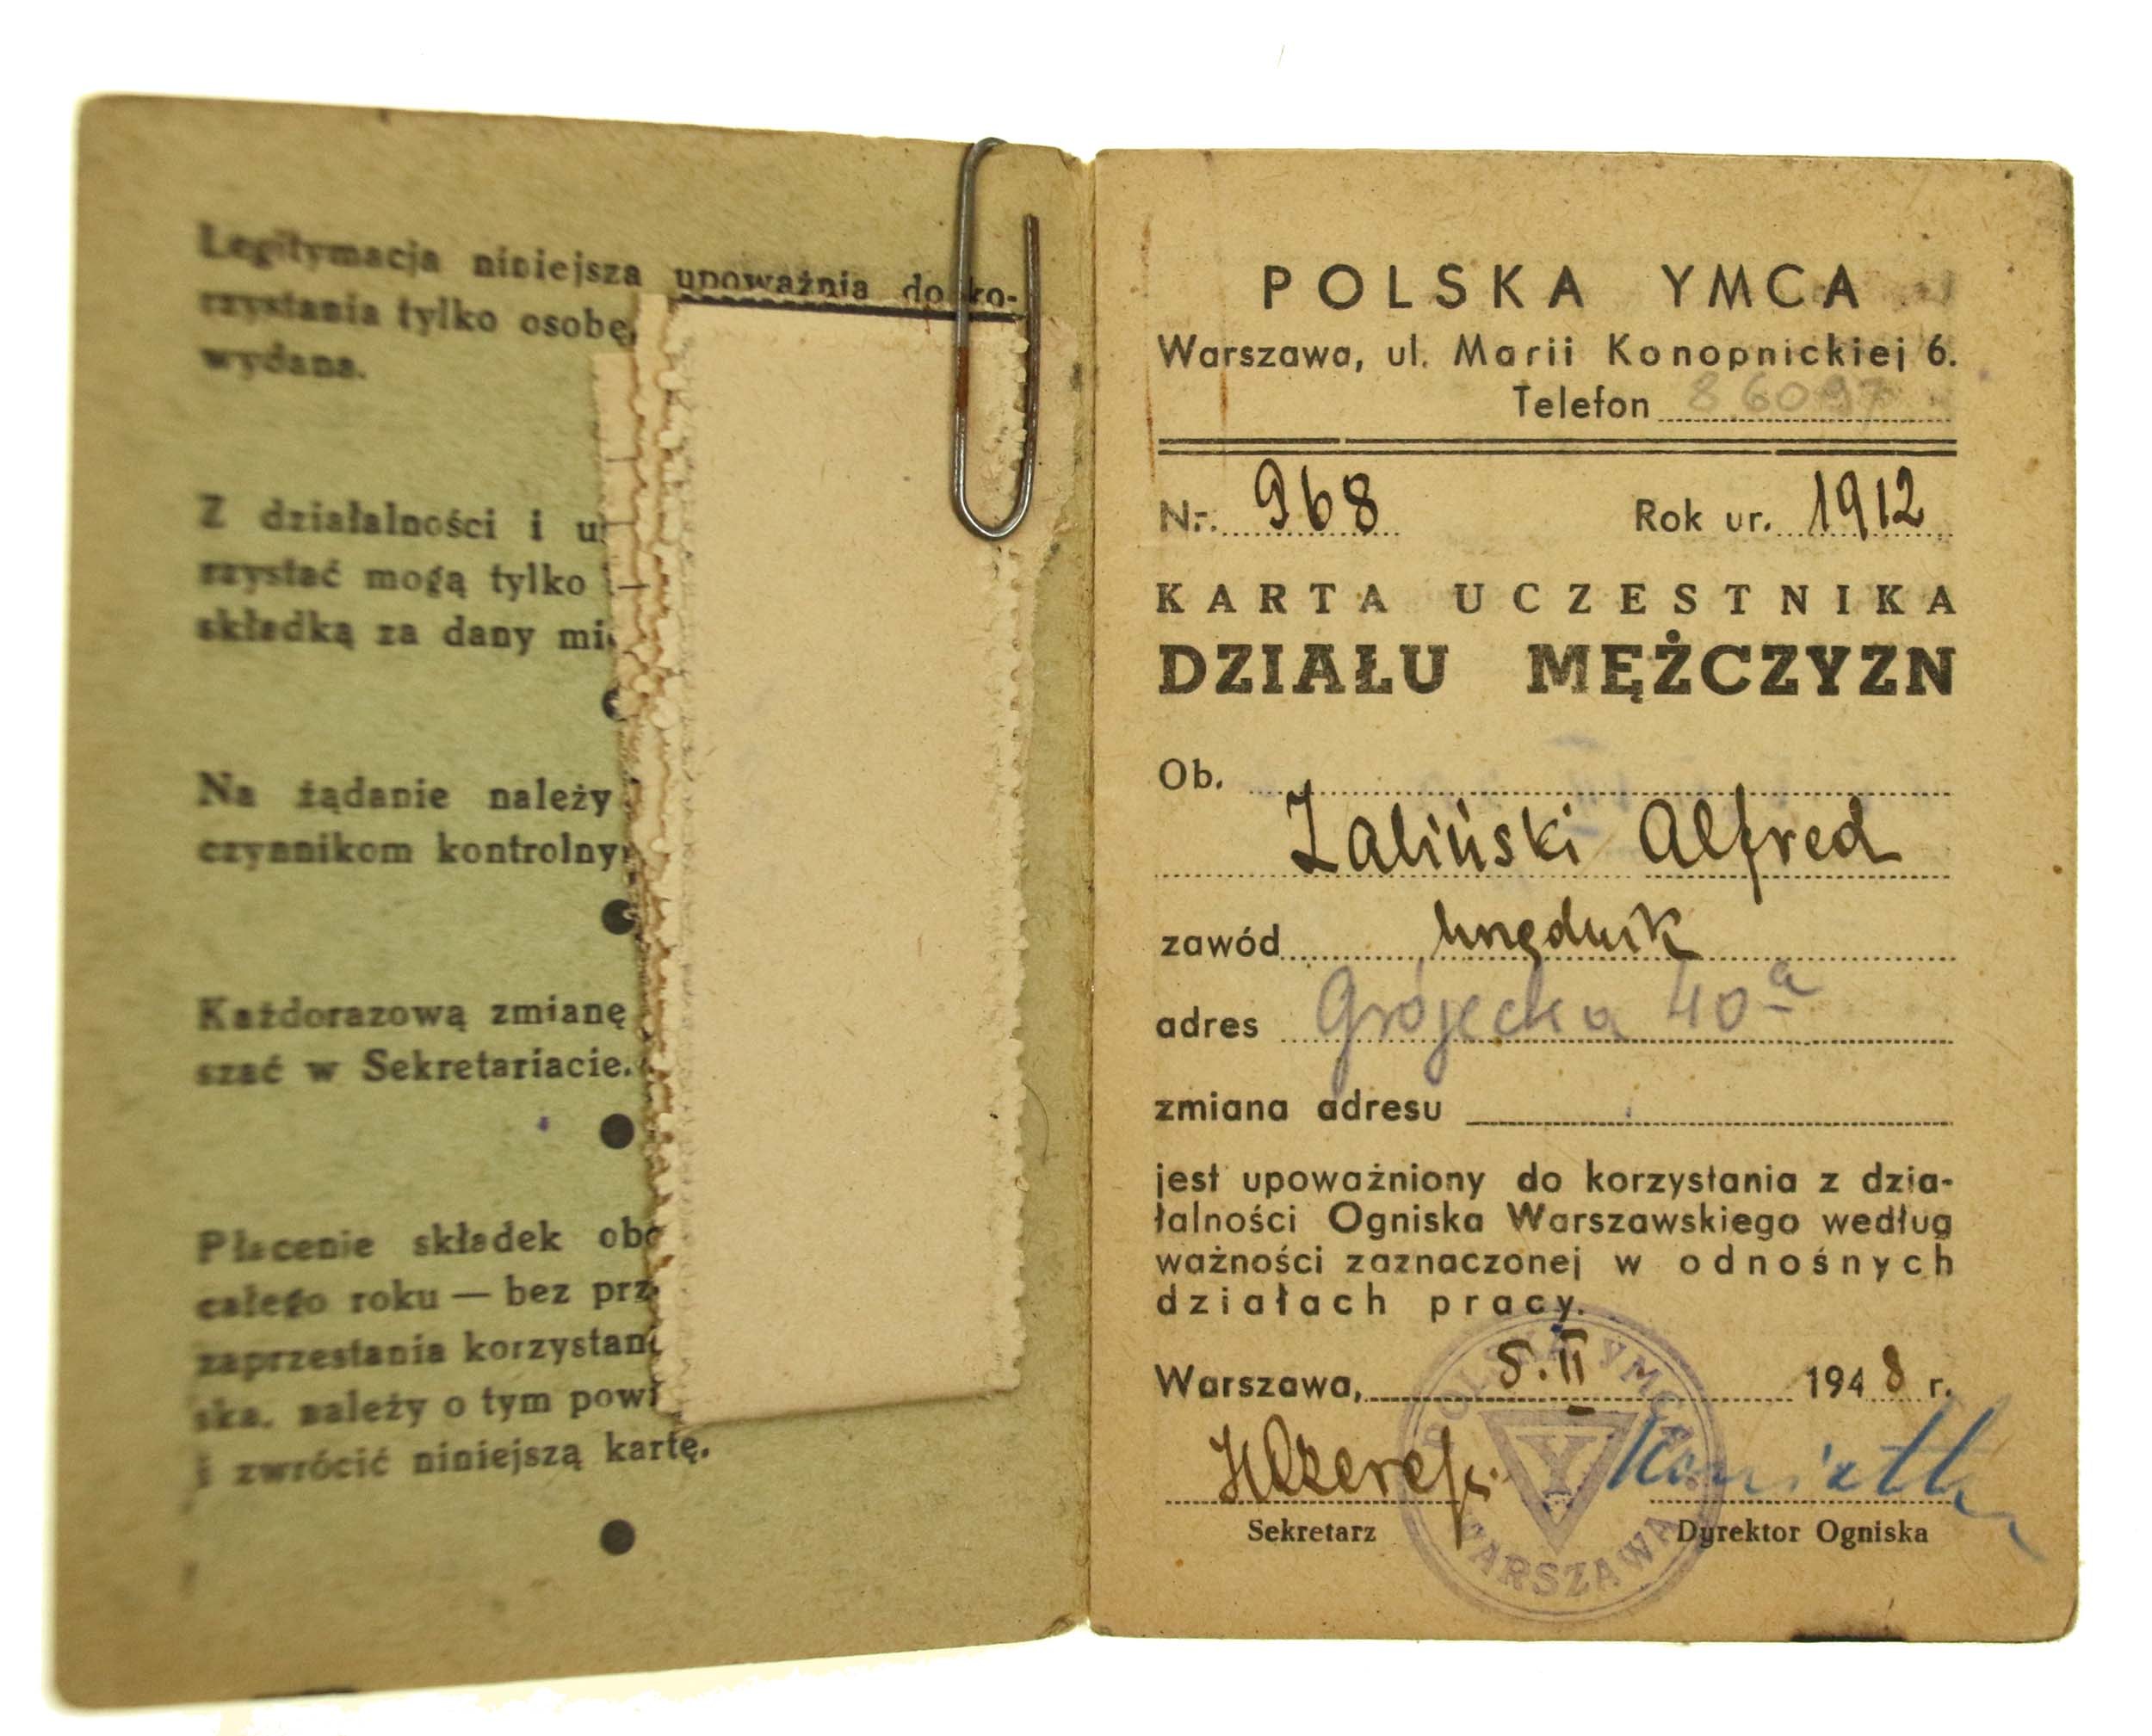 Legitymacja niniejsza upoważnia do ko-
rzystania tylko osobę,
wydana.
Z działalności i
rzystać mogą tylko
składką za dany
Na żądanie należy
czynnikom
Każdorazową zmianę
szać w Sekretariacie.
Płacenie składek
całego roku — bez
zaprzestania
ska, należy o tym
i zwrócić niniejszą kartę.
POLSKA YMCA
Warszawa, ul. Marii Konopnickiej 6.
Telefon 86097
Nr. 968 Rok ur. 1912
KARTA UCZESTNIKA
DZIAŁU MĘŻCZYZN
Ob.
Zaliński Alfred
zawód urzędnik
adres Grójecka 40a
zmiana adresu
jest upoważniony do korzystania z dzia-
łalności Ogniska Warszawskiego według
ważności zaznaczonej w odnośnych
działach pracy.
Warszawa, 5.II 1948 r.
Sekretarz Dyrektor Ogniska
POLSKA YMCA
Y
WARSZAWA